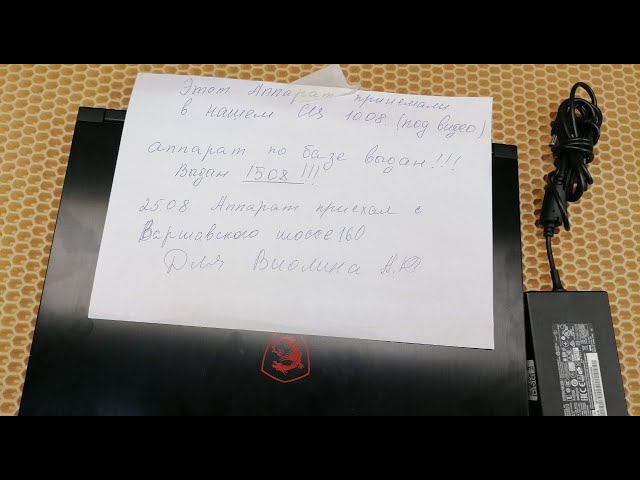 Этот Аппарат принимали
в нашем СЦ 10.08. (под видео)
аппарат по базе выдан!!!
Выдан 15.08!!!
25.08 Аппарат приехал с
Варшавского шоссе 160
Для Виолина А.Ю